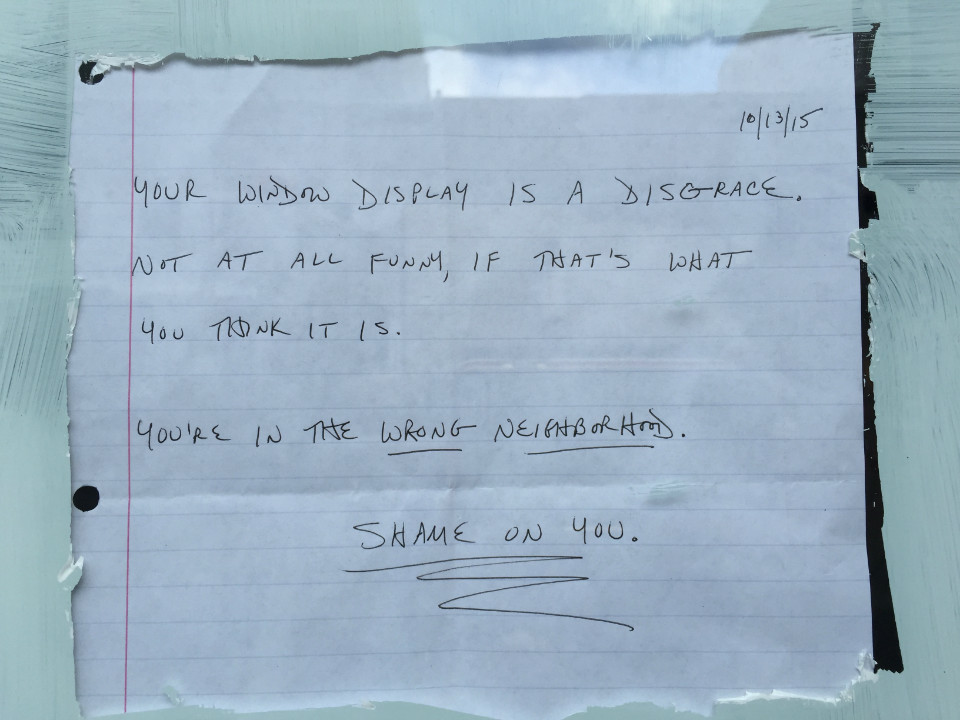 10/13/15
YOUR WINDOW DISPLAY IS A DISGRACE.
NOT AT ALL FUNNY, IF THAT'S WHAT
YOU THINK IT IS.
YOU'RE IN THE WRONG NEIGHBORHOOD.
SHAME ON YOU.